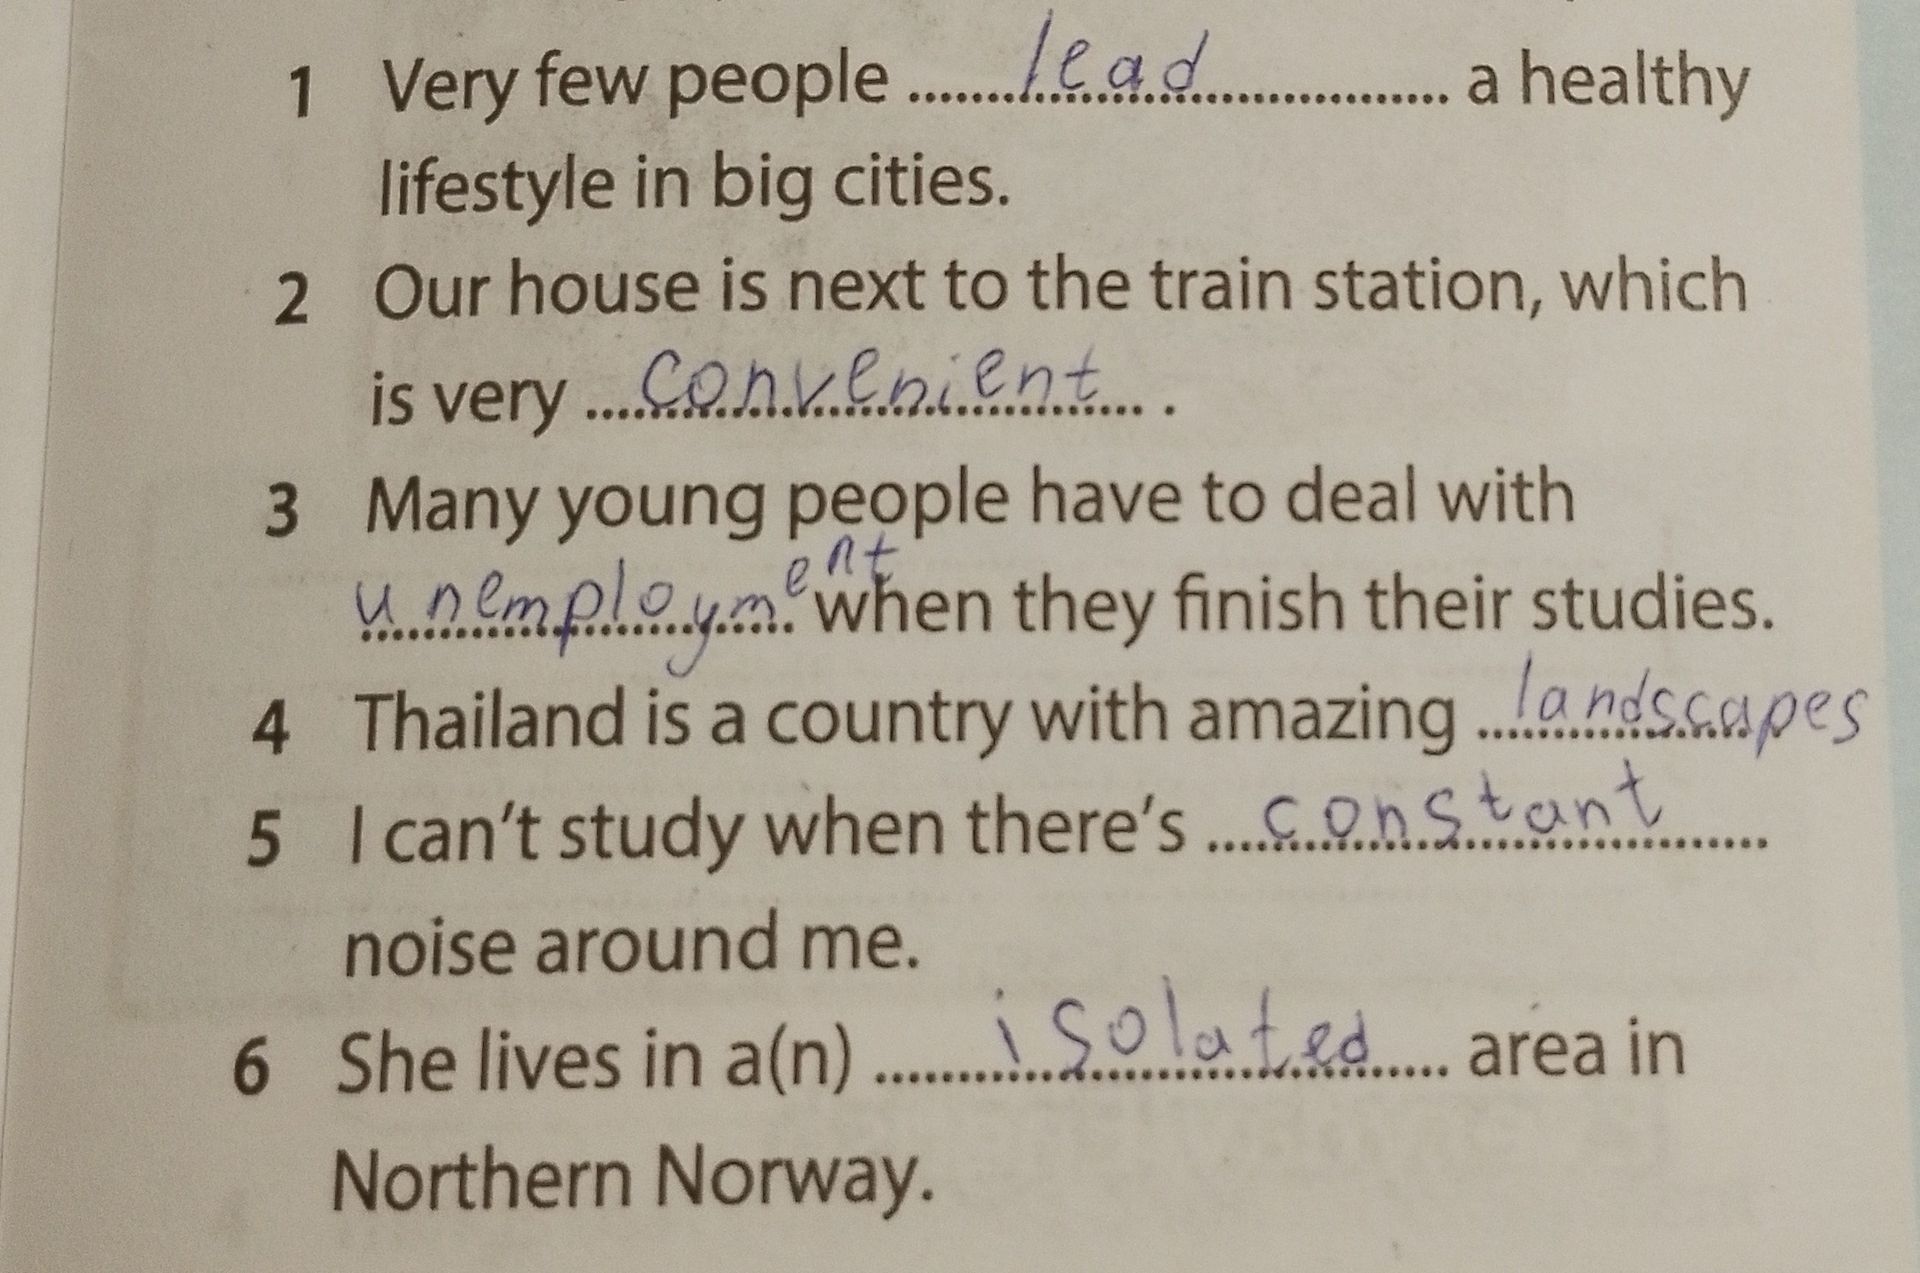 1 Very few people ......lead...... a healthy
lifestyle in big cities.
2 Our house is next to the train station, which
is very ...convenient... .
3 Many young people have to deal with
unemployment when they finish their studies.
4 Thailand is a country with amazing ...landscapes
5 I can't study when there's ...constant...
noise around me.
6 She lives in a(n) ......isolated... area in
Northern Norway.